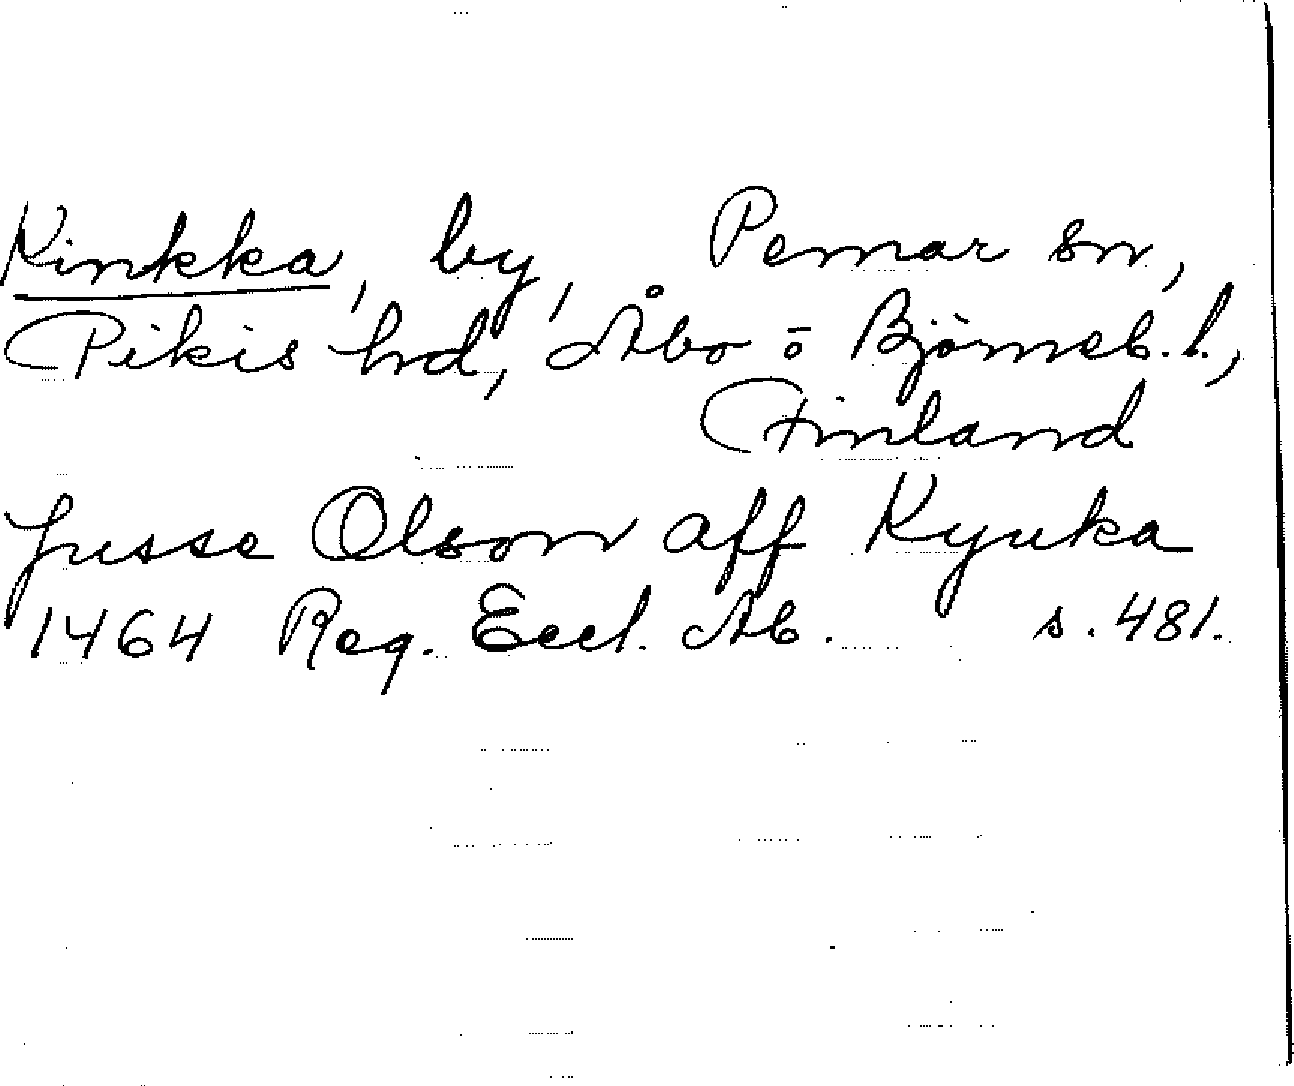 Kinkka, by, Pemar sn,
Pikis hd, Åbo o Björneb. l.,
Finland
Jusse Olson aff Kyuka
1464 Reg. Eccl. Ab. s. 481.